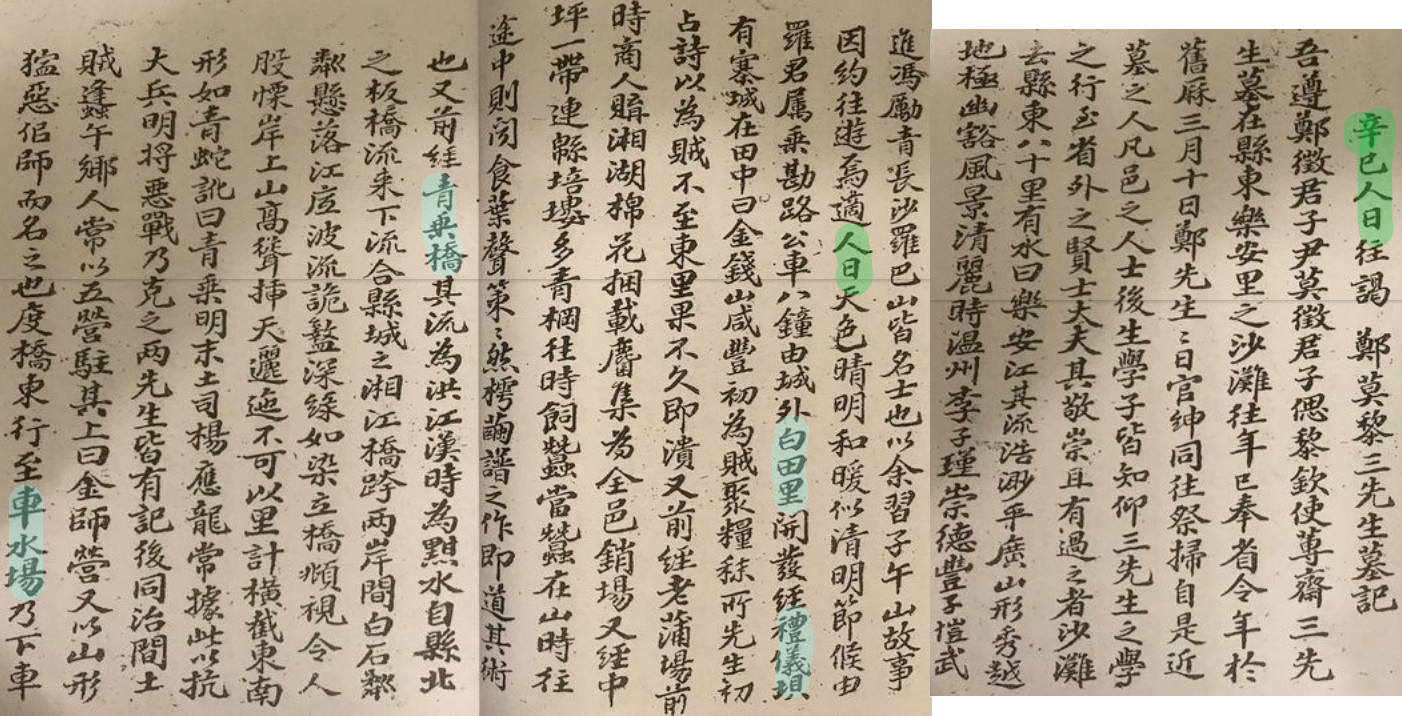 辛巳人日往謁 鄭莫黎三先生墓記
吾遵鄭徵君子尹莫徵君子偲黎欽使蓴齋三先
生墓在縣東樂安里之沙灘往年已奉省令年於
舊厤三月十日鄭先生〻日官紳同往祭掃自是近
墓之人凡邑之人士後生學子皆知仰三先生之學
之行至省外之賢士大夫其敬崇且有過之者沙灘
去縣東八十里有水曰樂安江其流浩渺平廣山形秀越
地極幽豁風景清麗時温州李子瑾崇德豐子愷武
進馮勵青長沙羅巴山皆名士也以余習子午山故事
因約往遊焉適人日天色晴明和暖似清明節候由
羅君属乗勘路公車八鐘由城外白田里開發經禮儀垻
有寨城在田中曰金錢山咸豐初為賊聚糧秣所先生初
占詩以為賊不至東里果不久即潰又前經老蒲場前
時商人賄湘湖棉花捆載麕集為全邑銷場又經中
坪一帶連緜培塿多青棡往時飼蠶當蠶在山時往
途中則闻食葉聲策〻然樗繭譜之作即道其術
也又前經青乗橋其流為洪江漢時為黚水自縣北
之板橋流来下流合縣城之湘江橋跨两岸間白石粼
粼懸落江底波流詭盭深綠如染立橋頫視令人
股慄岸上山高聳揷天邐迤不可以里計橫截東南
形如青蛇訛曰青乗明末土司楊應龍常據此以抗
大兵明将惡戰乃克之两先生皆有記後同治間土
賊蠭午鄉人常以五營駐其上曰金師營又以山形
猛惡佀師而名之也度橋東行至車水場乃下車